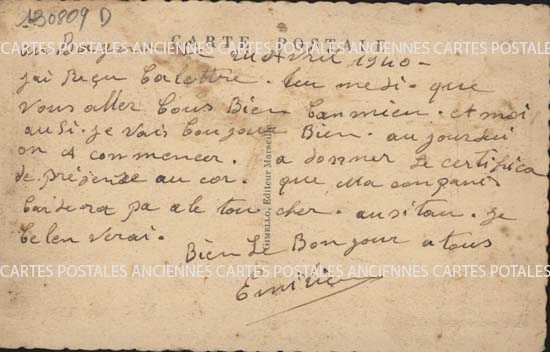 130809 D
CARTE POSTALE
Avril 1940 -
j'ai Reçu ta lettre. tu me di. que
vous aller tous Bien tanmieu. et moi
ausi. je vais toujour Bien. aujourdui
on a commencer. a donner le certifica
de présense au cor. que Ma conpani
tardera pa a le toucher. ausitau. je
te len verai.
Bien le Bonjour a tous
Emile
GIMELLO, Editeur Marseille
CARTES POSTALES ANCIENNES CARTES POSTALES ANCIENNES CARTES POTALES
CARTES POSTALES ANCIENNES CARTES POSTALES ANCIENNES CARTES POTALES